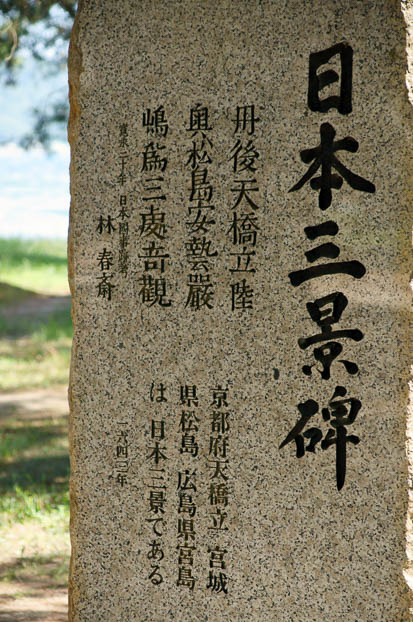 日本三景碑
丹後天橋立陸
奥松島安藝嚴
嶋為三處奇觀
寛永二十年 日本国事跡考
林 春斎
京都府天橋立 宮城
県松島 広島県宮島
は 日本三景である
一六四三年